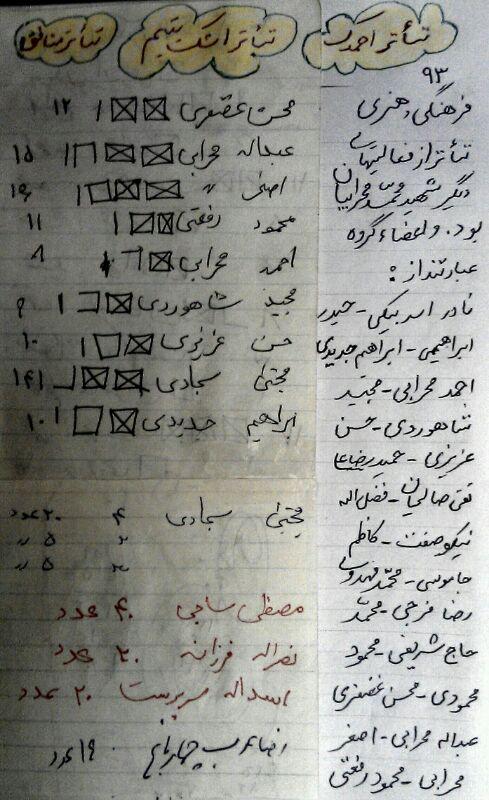 تئاتر اشک یتیم
۹۳
فرهنگی، هنری
تئاتر از فعالیتهای
دیگر شهید محمد محرابیان
بود. و اعضاء گروه
عبارتند از:
نادر اسد بیگی - حیدر
ابراهیمی - ابراهیم حدیدی
احمد محرابی - مجید
شاهوردی - حسن
عزیزی - حمیدرضا
تقی صالحیان - فضل الله
نیکو صفت - کاظم
رضا فرجی - محمد
حاج شریفی - محمود
محمودی - محسن غضنفری
عبداله محرابی - اصغر
محرابی - محمود رفعتی
محسن غضنفری ۱۲
عبداله محرابی ۱۵
اصغر " ۱۶
محمود رفعتی ۱۱
احمد محرابی ۸
مجید شاهوردی ۹
حسن عزیزی ۱۰
مجتبی سجادی ۱۴
ابراهیم حدیدی ۱۰
مجتبی سجادی ۴ ۲۰ عدد
۳ ۵ "
۳ ۵ "
مصطفی سامی ۴۰ عدد
نصراله فرزانه ۲۰ عدد
اسداله سرپرست ۲۰ عدد
رضا عرب چهارباغ ۱۹ عدد